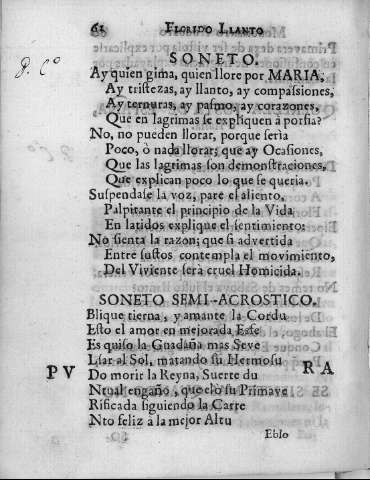 62 FLORIDO LLANTO
SONETO.
P. Cº
Ay quien gima, quien llore por MARIA,
Ay tristezas, ay llanto, ay compassiones,
Ay ternuras, ay pasmo, ay corazones,
Que en lagrimas se expliquen à porfia?
No, no pueden llorar, porque serìa
Poco, ò nada llorar; que ay Ocasiones,
Que las lagrimas son demonstraciones,
Que explican poco lo que se queria.
Suspendase la voz, pare el aliento,
Palpitante el principio de la Vida
En latidos explique el sentimiento:
No sienta la razon; que si advertida
Entre sustos contempla el movimiento,
Del Viviente serà cruel Homicida.
SONETO SEMI-ACROSTICO.
Blique tierna, y amante la Cordu
Esto el amor en mejorada Esfe
Es quiso la Guadaña mas Seve
Lsar al Sol, matando su Hermosu
PV Do morir la Reyna, Suerte du RA
Ntual engaño, que clò su Primave
Rificada siguiendo la Carre
Nto feliz à la mejor Altu
Eblo